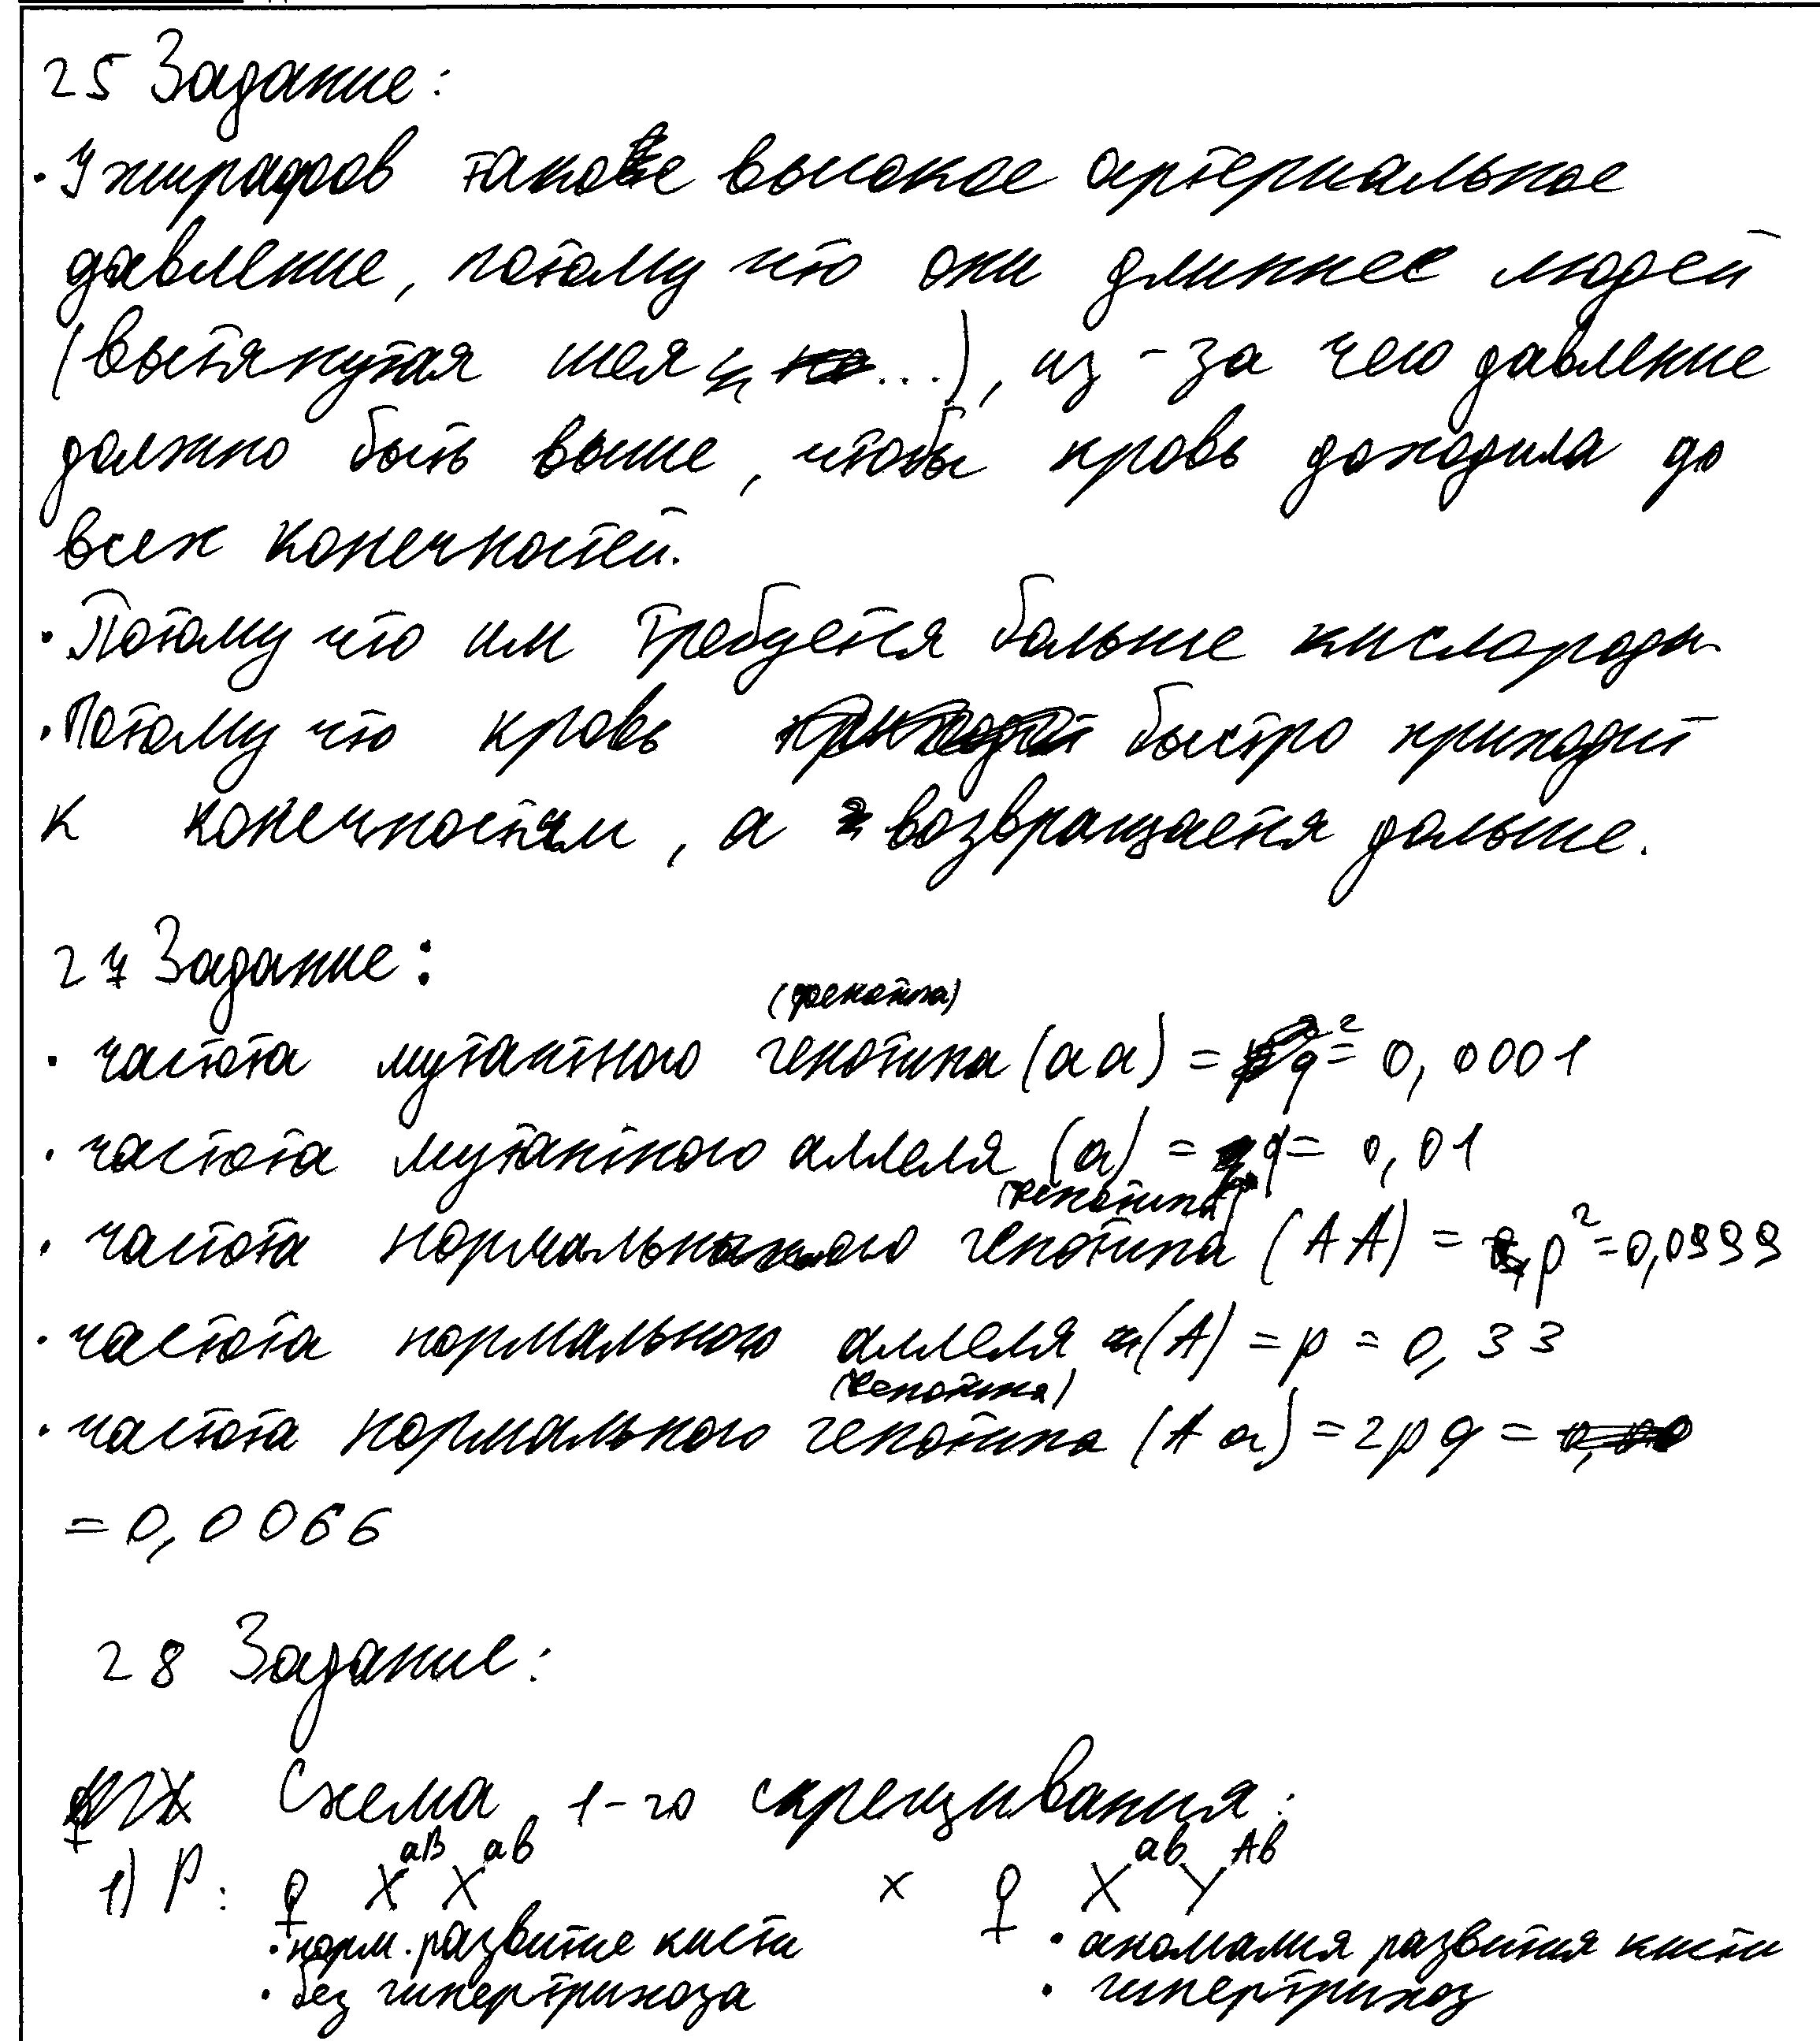 25 Задание:
· У жирафов такое высокое артериальное
давление, потому что они длиннее людей
(вытянутая шея и ...), из-за чего давление
должно быть выше, чтобы кровь доходила до
всех конечностей.
· Потому что им требуется больше кислорода.
· Потому что кровь быстро приходит
к конечностям, а возвращается дольше.
27 Задание:
(фенотипа)
· частота мутантного генотипа (aa) = q² = 0,0001
· частота мутантного аллеля (a) = q = 0,01
(фенотипа)
· частота нормального генотипа (AA) = p² = 0,0999
· частота нормального аллеля (A) = p = 0,33
(фенотипа)
· частота нормального генотипа (Aa) = 2pq =
= 0,0066
28 Задание:
Схема 1-го скрещивания:
1) P: ♀ X^aB X^ab × ♀ X^ab Y^Ab
· норм. развитие кисти · аномалия развития кисти
· без гипертрихоза · гипертрихоз